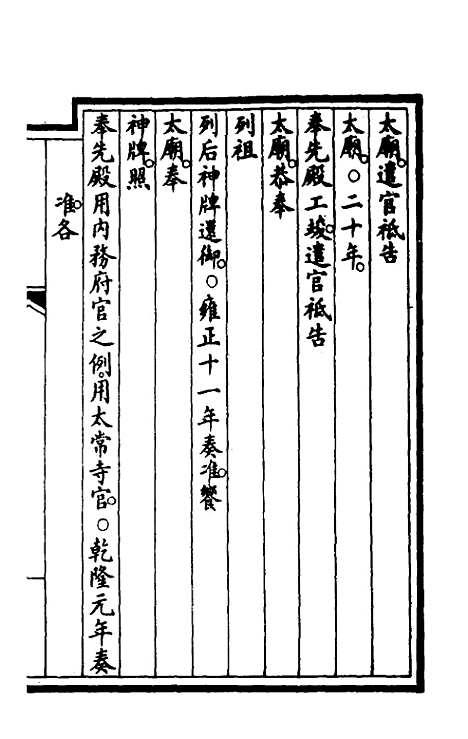 太廟。遣官祗告
太廟。○二十年。
奉先殿工竣。遣官祗告
太廟。恭奉
列祖
列后神牌還御。○雍正十一年奏准。饗
太廟。奉
神牌。照
奉先殿用內務府官之例。用太常寺官。○乾隆元年奏
准。各